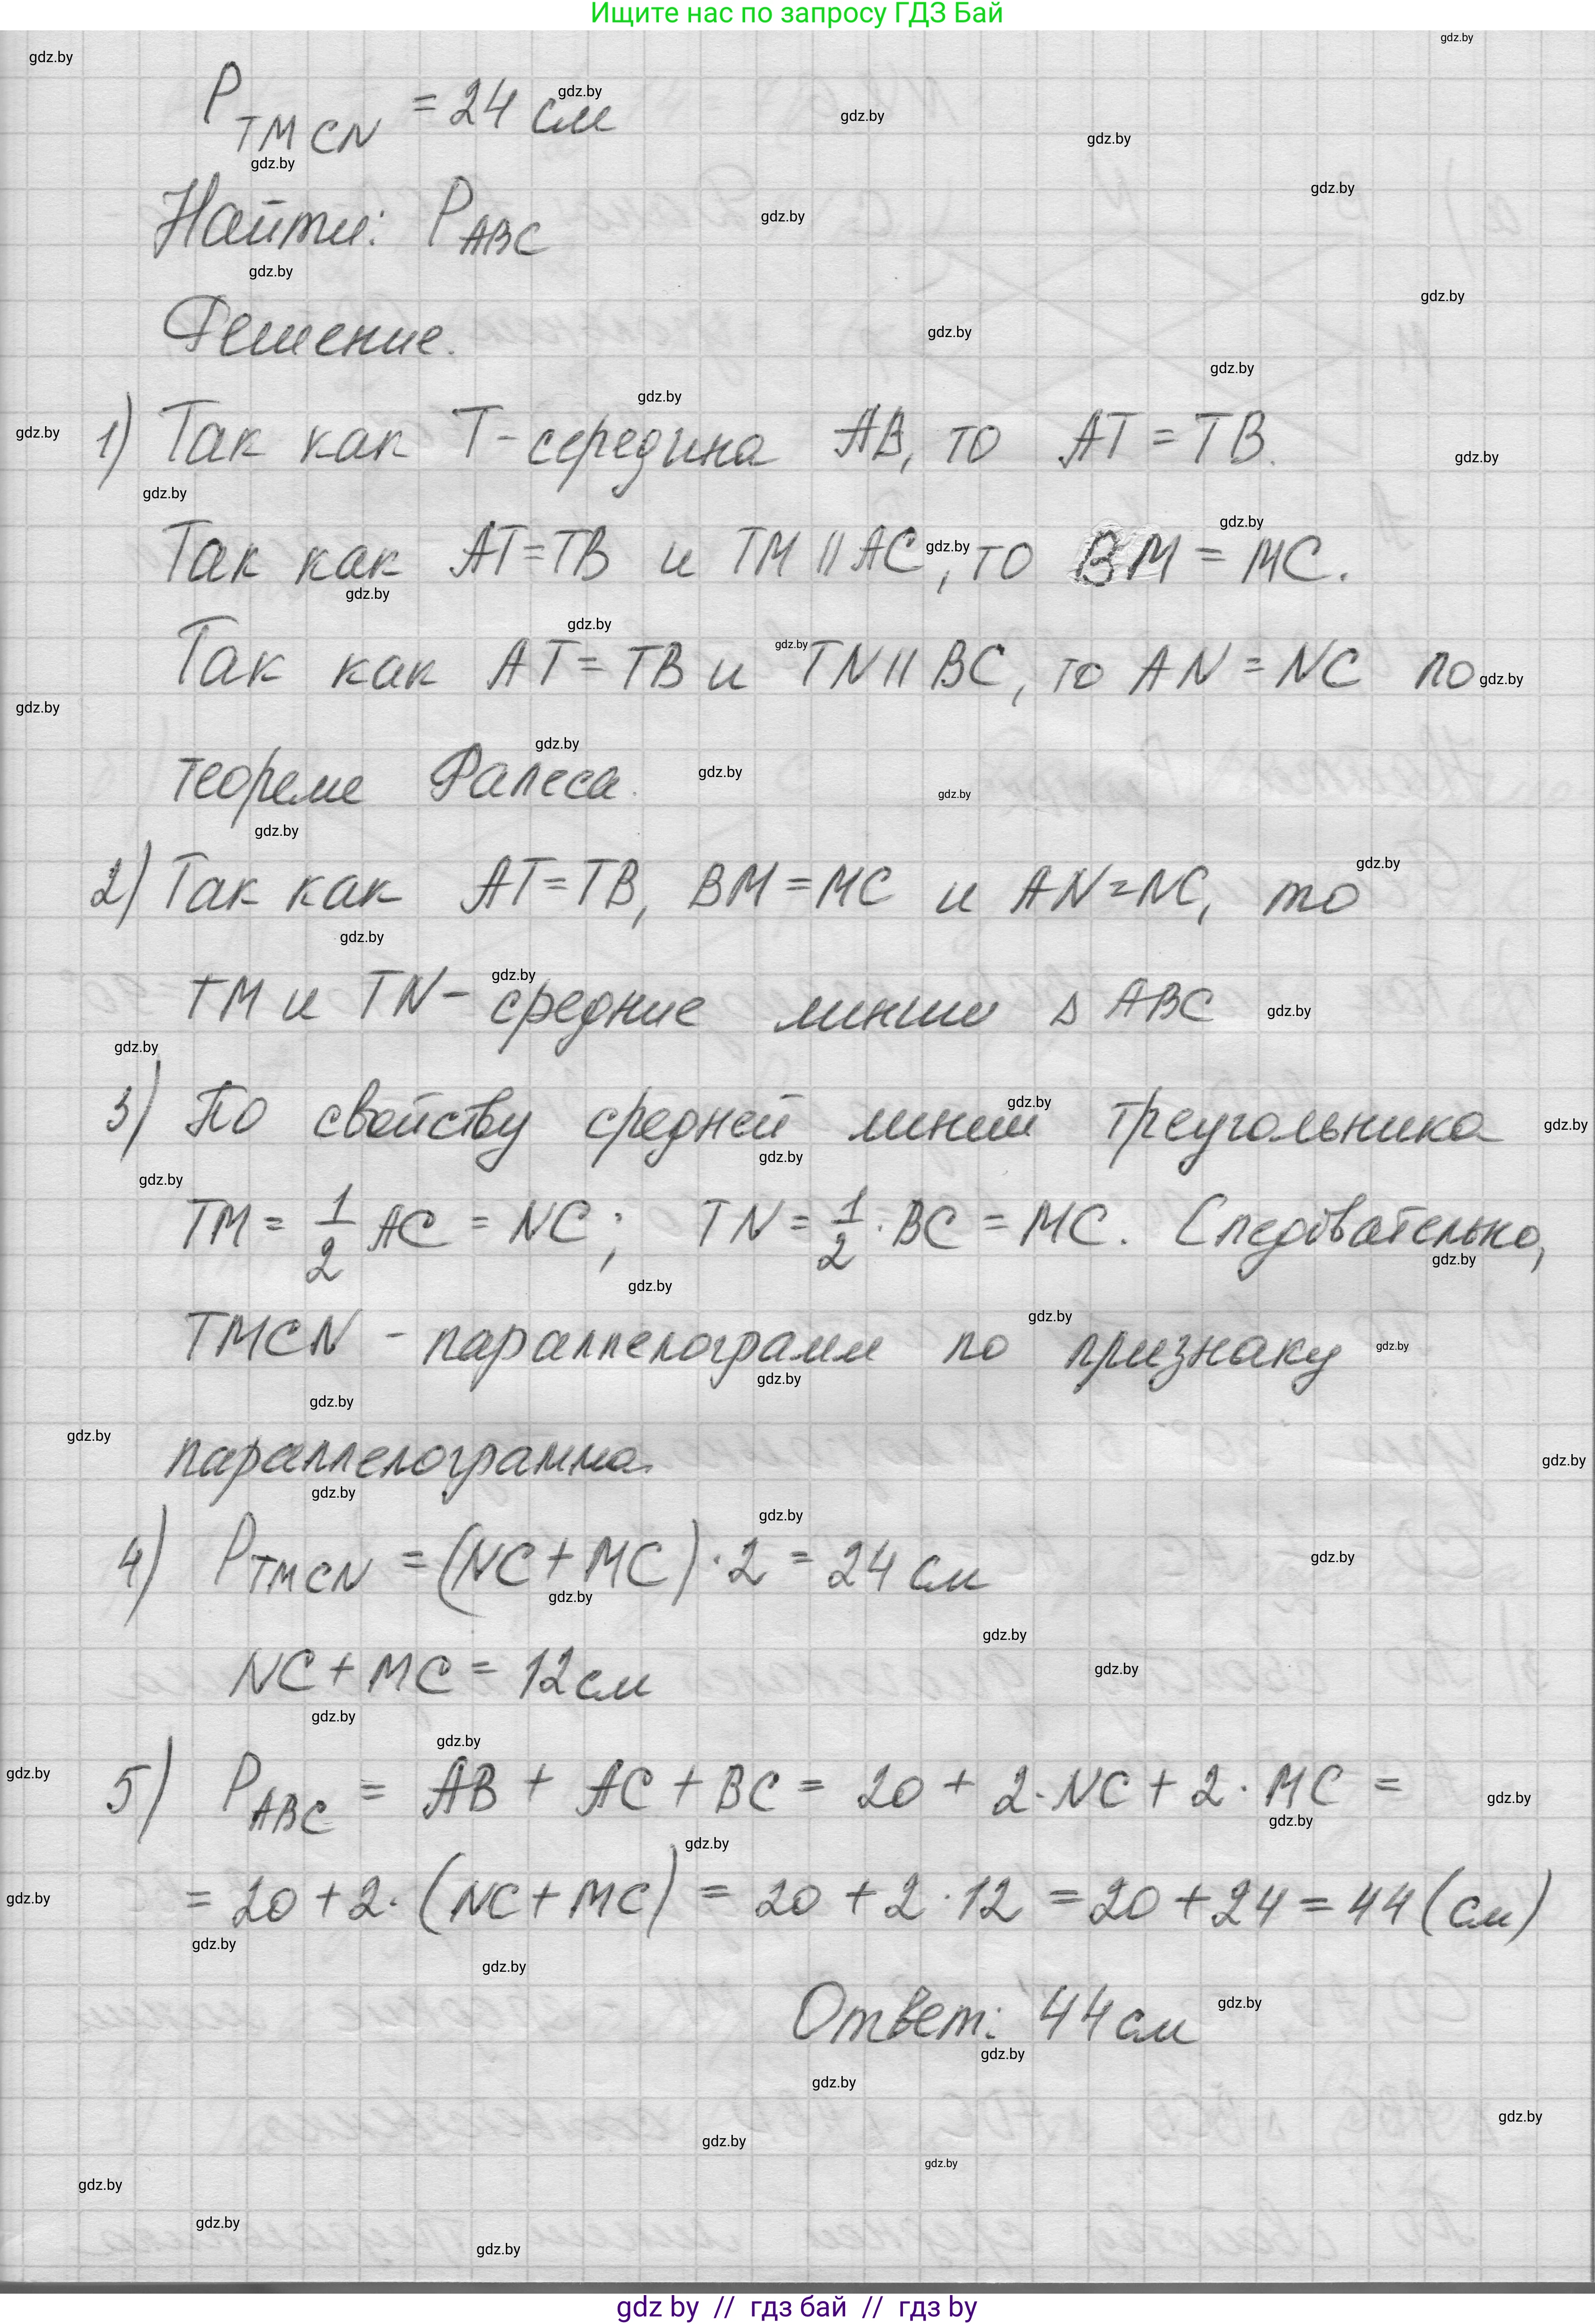 Ищите нас по запросу ГДЗ Бай
P_TMCN = 24 см
Найти: P_ABC
Решение.
1) Так как T - середина AB, то AT = TB.
Так как AT=TB и TM || AC, то BM = MC.
Так как AT = TB и TN || BC, то AN = NC по
теореме Фалеса.
2) Так как AT=TB, BM=MC и AN=NC, то
TM и TN - средние линии Δ ABC
3) По свойству средней линии треугольника
TM = 1/2 AC = NC; TN = 1/2 · BC = MC. Следовательно,
TMCN - параллелограмм по признаку
параллелограмма.
4) P_TMCN = (NC + MC) · 2 = 24 см
NC + MC = 12 см
5) P_ABC = AB + AC + BC = 20 + 2 · NC + 2 · MC =
= 20 + 2 · (NC + MC) = 20 + 2 · 12 = 20 + 24 = 44 (см)
Ответ: 44 см
gdz by // гдз бай // гдз by